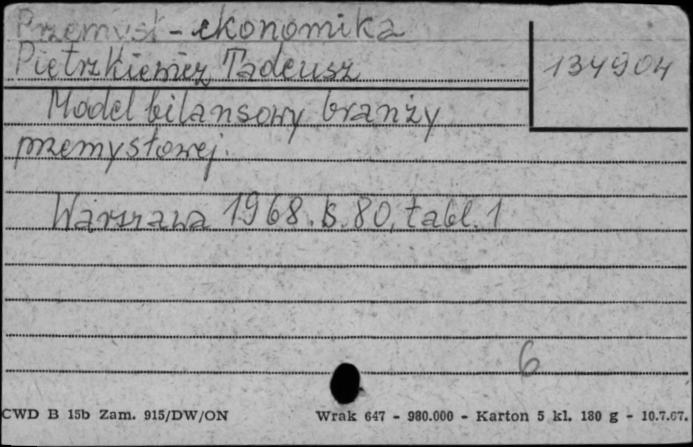 Przemysł - ekonomika
Pietrzkiewicz Tadeusz
134904
Model bilansowy branży
przemysłowej.
Warszawa 1968. s. 80, tabl. 1
6
CWD B 15b Zam. 915/DW/ON
Wrak 647 - 980.000 - Karton 5 kl. 180 g - 10.7.67.